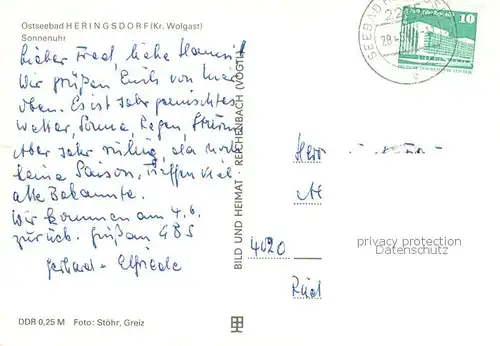 Ostseebad HERINGSDORF (Kr. Wolgast)
Sonnenuhr
Lieber Fred, liebe Hanni!
Wir grüßen Euch von hier
oben. Es ist sehr gemischtes
Wetter, Sonne, Regen, Sturm
Aber sehr ruhig, da noch
keine Saison. Treffen viel
alte Bekannte.
Wir kommen am 4.6.
zurück. Grüß an GBS
Gerhard - Elfriede
DDR 0,25 M Foto: Stöhr, Greiz
BILD UND HEIMAT REICHENBACH (VOGTL)
SEEBAD
10
Herr
4020
privacy protection
Datenschutz